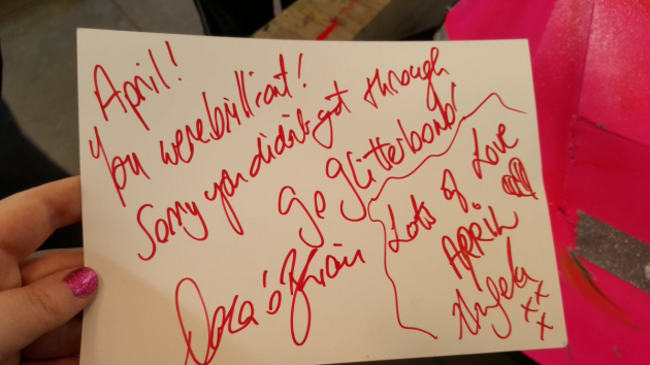 April!
You were brilliant!
Sorry you didn't get through
Go Glitterbomb!
Dara ó Briain
Lots of Love
APRIL
Angela
xxx